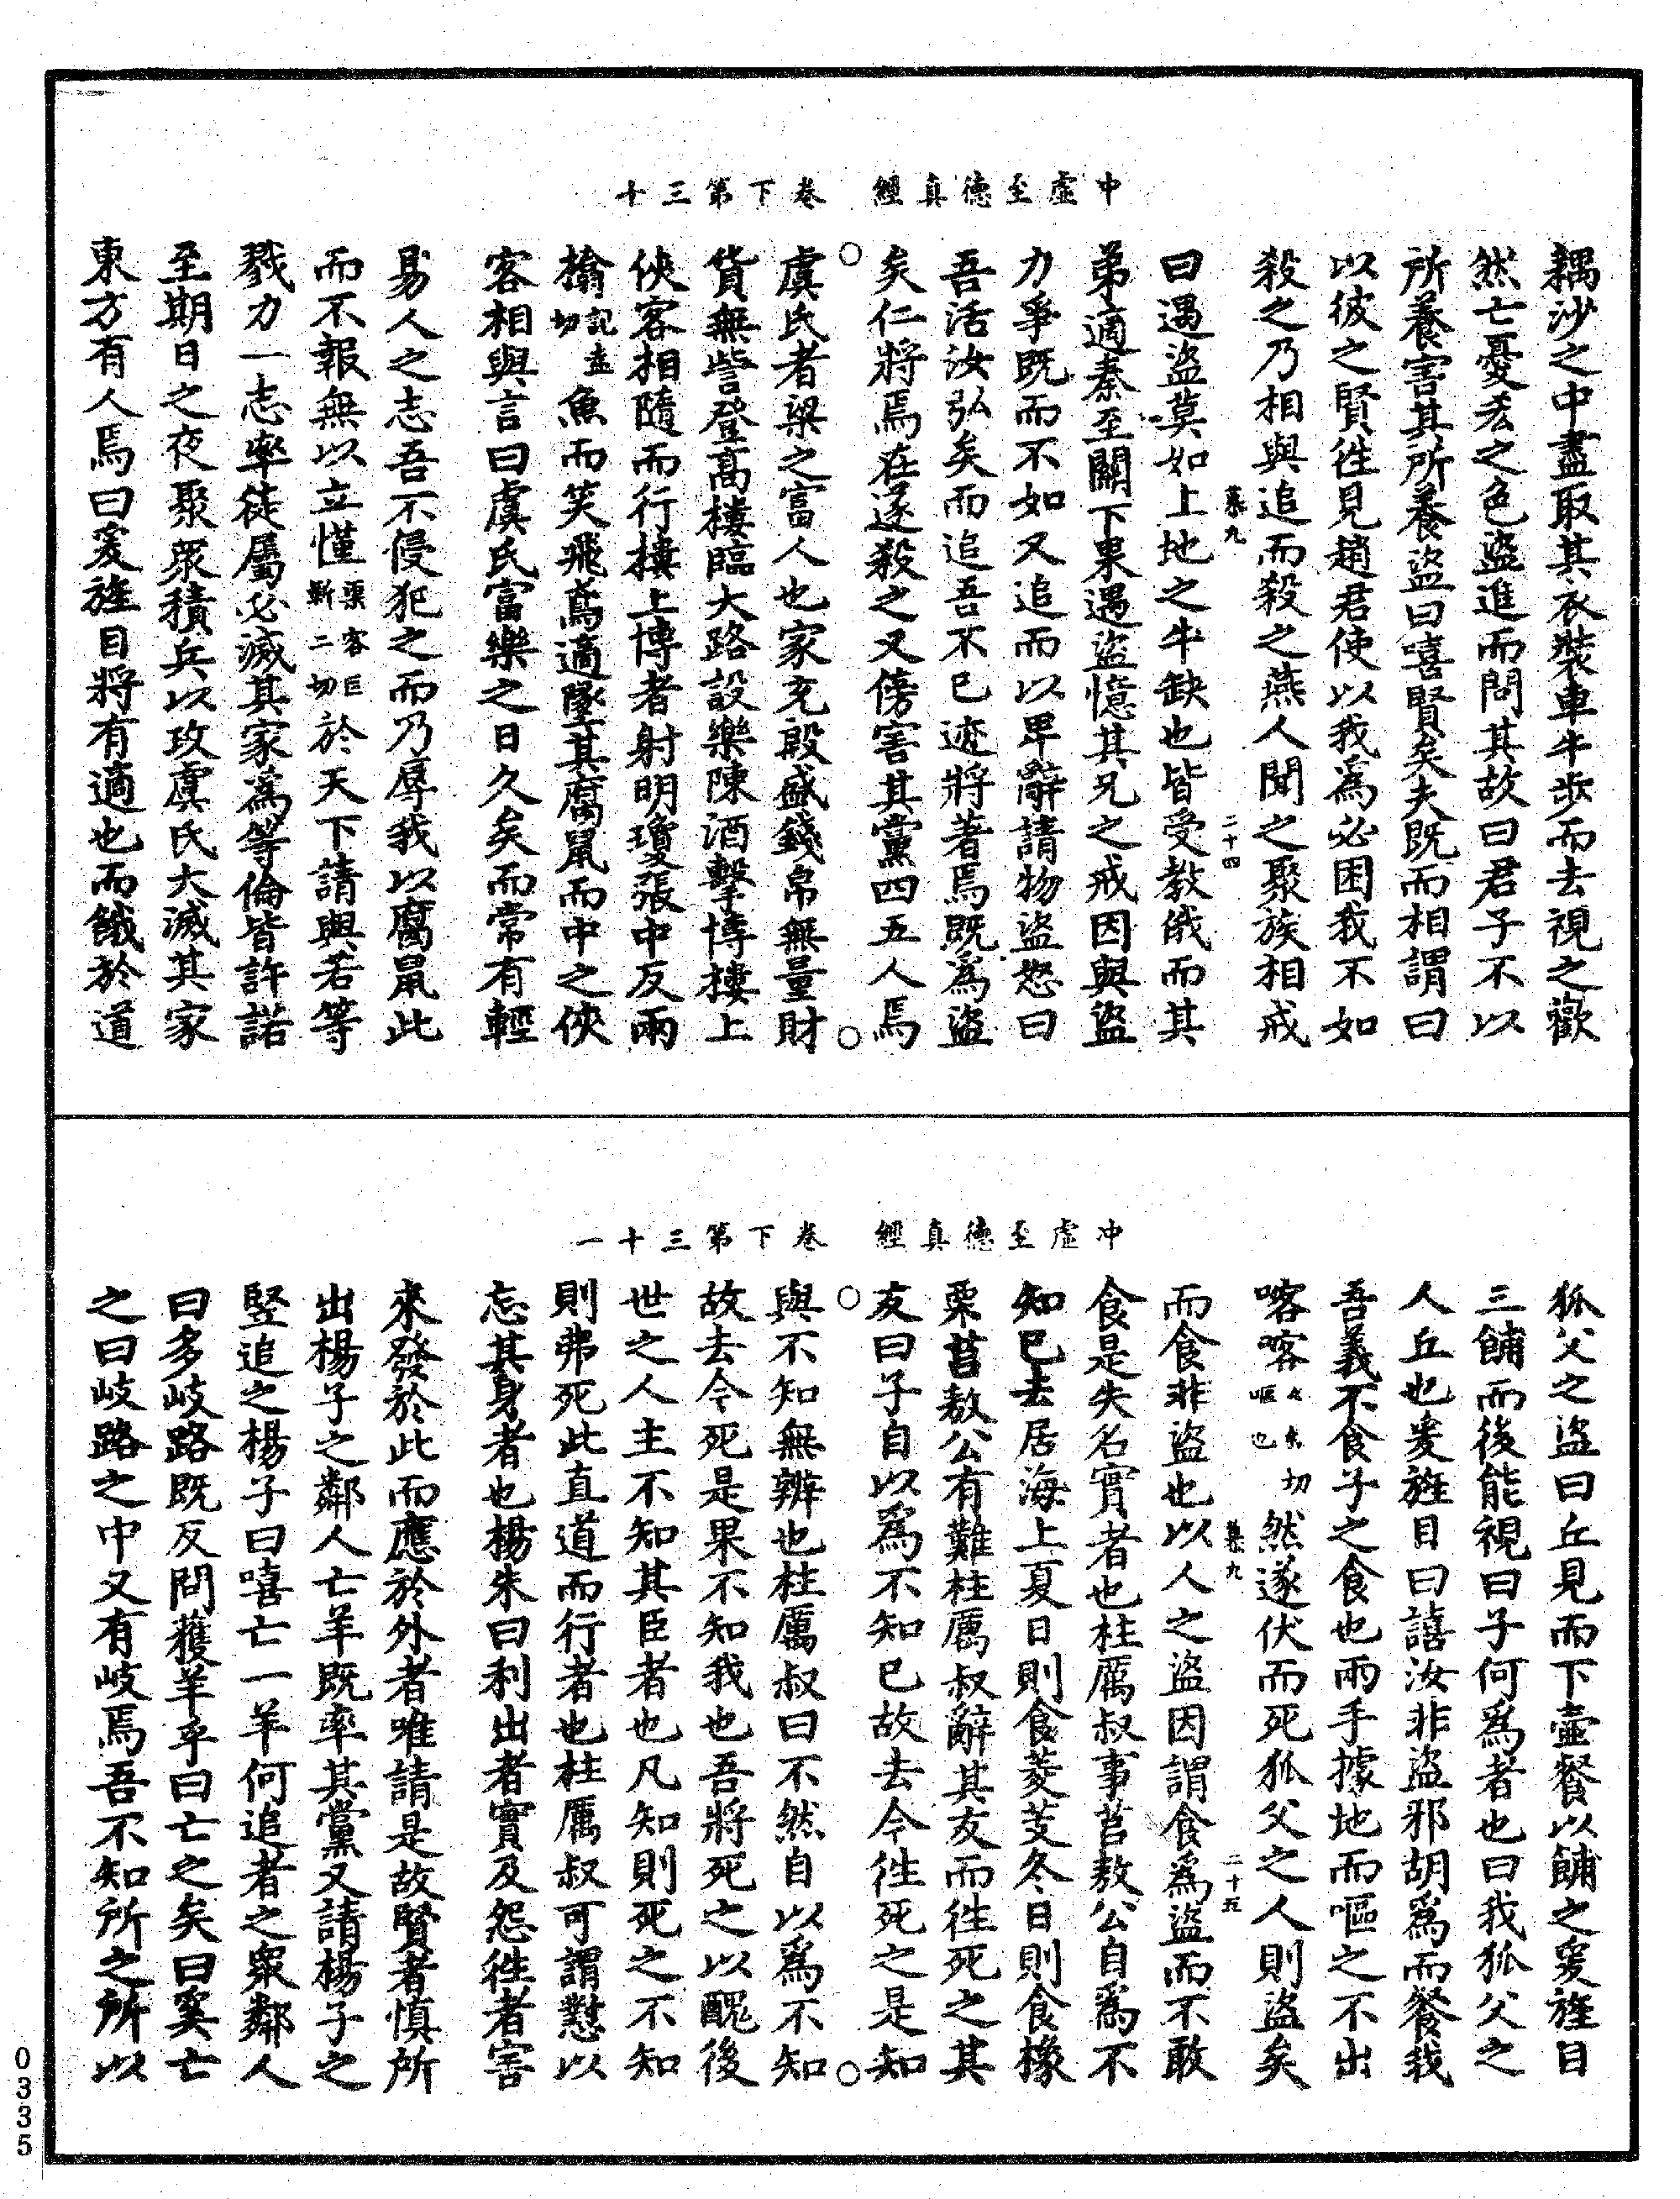 冲虛至德真經　卷下第三十
耦沙之中盡取其衣裝車牛步而去視之歡
然亡憂𠫤之色盜進而問其故曰君子不以
所養害其所養盜曰嘻賢矣夫既而相謂曰
以彼之賢徃見趙君使以我爲必困我不如
殺之乃相與追而殺之燕人聞之聚族相戒
慕九　二十四
曰遇盜莫如上地之牛缺也皆受教俄而其
弟適秦至關下果遇盜憶其兄之戒因與盜
力爭既而不如又追而以卑辭請物盜怒曰
吾活汝弘矣而追吾不已迹將著焉既爲盜
矣仁將焉在遂殺之又傍害其黨四五人焉
○　○
虞氏者梁之富人也家充殷盛錢帛無量財
貨無訾登高樓臨大路設樂陳酒擊博樓上
俠客相隨而行樓上博者射明瓊張中反兩
㯓切魚而笑飛鳶適墜其腐鼠而中之俠
客相與言曰虞氏富樂之日久矣而常有輕
易人之志吾不侵犯之而乃辱我以腐鼠此
而不報無以立慬渠客巨靳二切於天下請與若等
戮力一志率徒屬必滅其家爲等倫皆許諾
至期日之夜聚眾積兵以攻虞氏大滅其家
東方有人焉曰爰旌目將有適也而餓於道
冲虛至德真經　卷下第三十一
狐父之盜曰丘見而下壺餐以餔之爰旌目
三餔而後能視曰子何爲者也曰我狐父之
人丘也爰旌目曰譆汝非盜邪胡爲而餐我
吾義不食子之食也兩手據地而嘔之不出
喀喀切嘔也然遂伏而死狐父之人則盜矣
慕九　二十五
而食非盜也以人之盜因謂食爲盜而不敢
食是失名實者也柱厲叔事莒敖公自爲不
知已去居海上夏日則食菱芰冬日則食橡
栗莒敖公有難柱厲叔辭其友而徃死之其
友曰子自以爲不知已故去今徃死之是知
○　○
與不知無辨也柱厲叔曰不然自以爲不知
故去今死是果不知我也吾將死之以醜後
世之人主不知其臣者也凡知則死之不知
則弗死此直道而行者也柱厲叔可謂懟以
忘其身者也楊朱曰利出者實及怨徃者害
來發於此而應於外者唯請是故賢者慎所
出楊子之鄰人亡羊既率其黨又請楊子之
竪追之楊子曰嘻亡一羊何追者之眾鄰人
曰多岐路既反問獲羊乎曰亡之矣曰奚亡
之曰岐路之中又有岐焉吾不知所之所以
0335